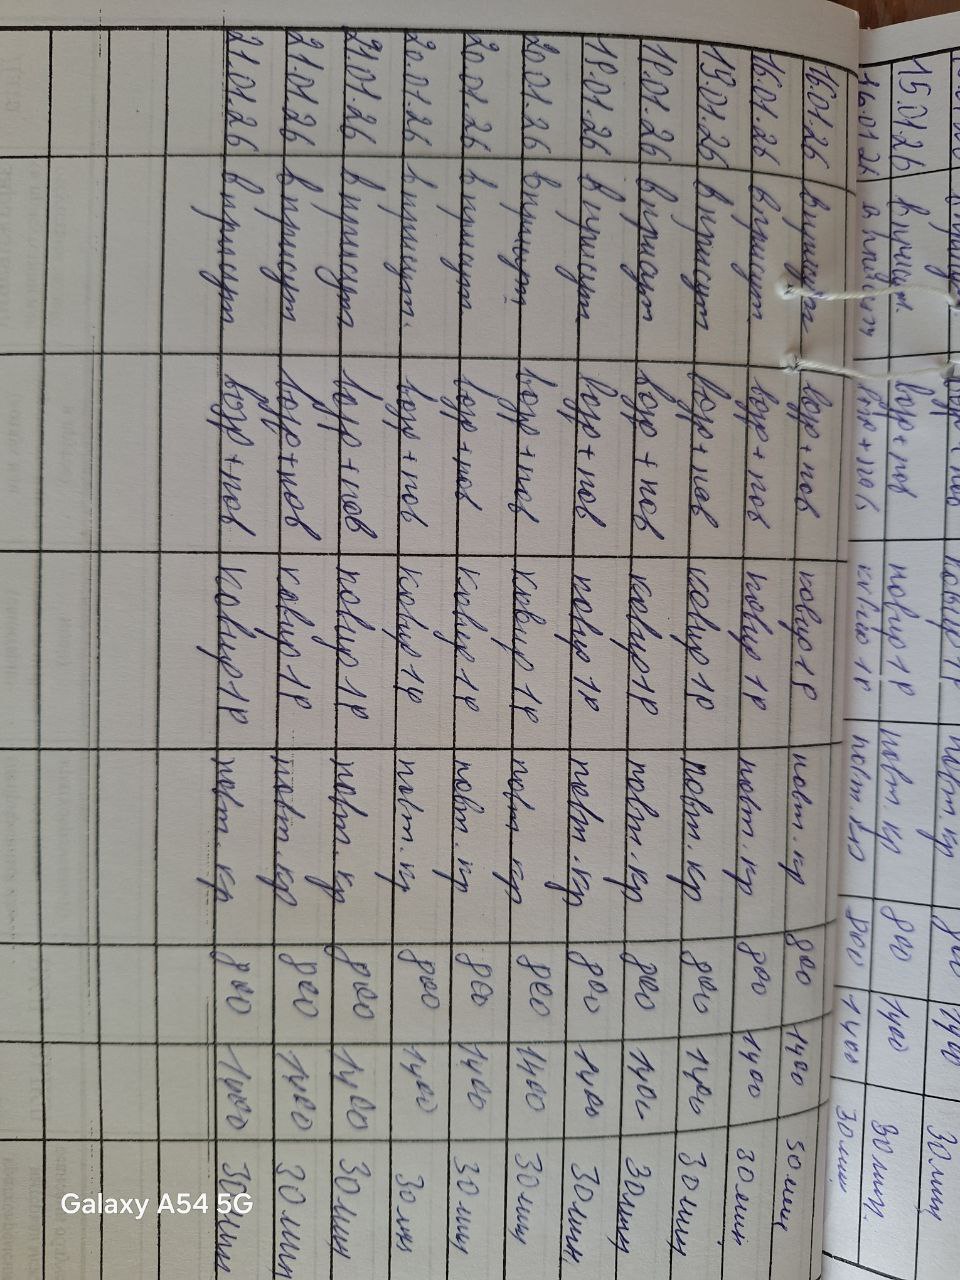 15.01.26 в присут. возд + пов повир 1р повт. кр 800 1400 30 мин.
16.01.26 в присут возд + пов ковир 1р повт. кр 800 1400 30 мин
16.01.26 в присут возд + пов повир 1р повт. кр 800 1400 30 мин
16.01.26 в присут возд + пов повир 1р повт. кр 800 1400 30 мин
19.01.26 в присут возд + пов ковир 1р повт. кр 800 1400 30 мин
19.01.26 в присут возд + пов ковир 1р повт. кр 800 1400 30 мин
19.01.26 в присут. возд + пов повир 1р повт. кр 800 1400 30 мин
20.01.26 в присут возд + пов ковир 1р повт. кр 800 1400 30 мин
20.01.26 в присут возд + пов ковир 1р повт. кр 800 1400 30 мин
20.01.26 в присут. возд + пов ковир 1р повт. кр 800 1400 30 мин
21.01.26 в присут возд + пов повир 1р повт. кр 800 1400 30 мин
21.01.26 в присут возд + пов ковир 1р повт. кр 800 1400 30 мин
21.01.26 в присут возд + пов ковир 1р повт. кр 800 1400 30 мин
Galaxy A54 5G